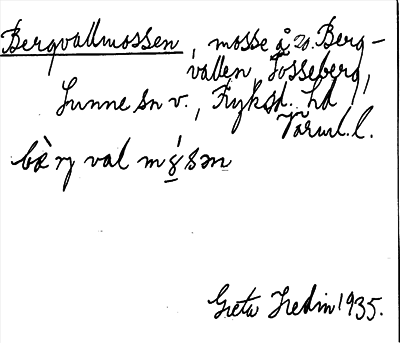 Bergvallmossen, mosse å 20. Berg-
vallen, Tosseberg,
Sunne sn v., Fryksd. hd
Värml. l.
bæ̀ry val mǿsən
Greta Hedin 1935.